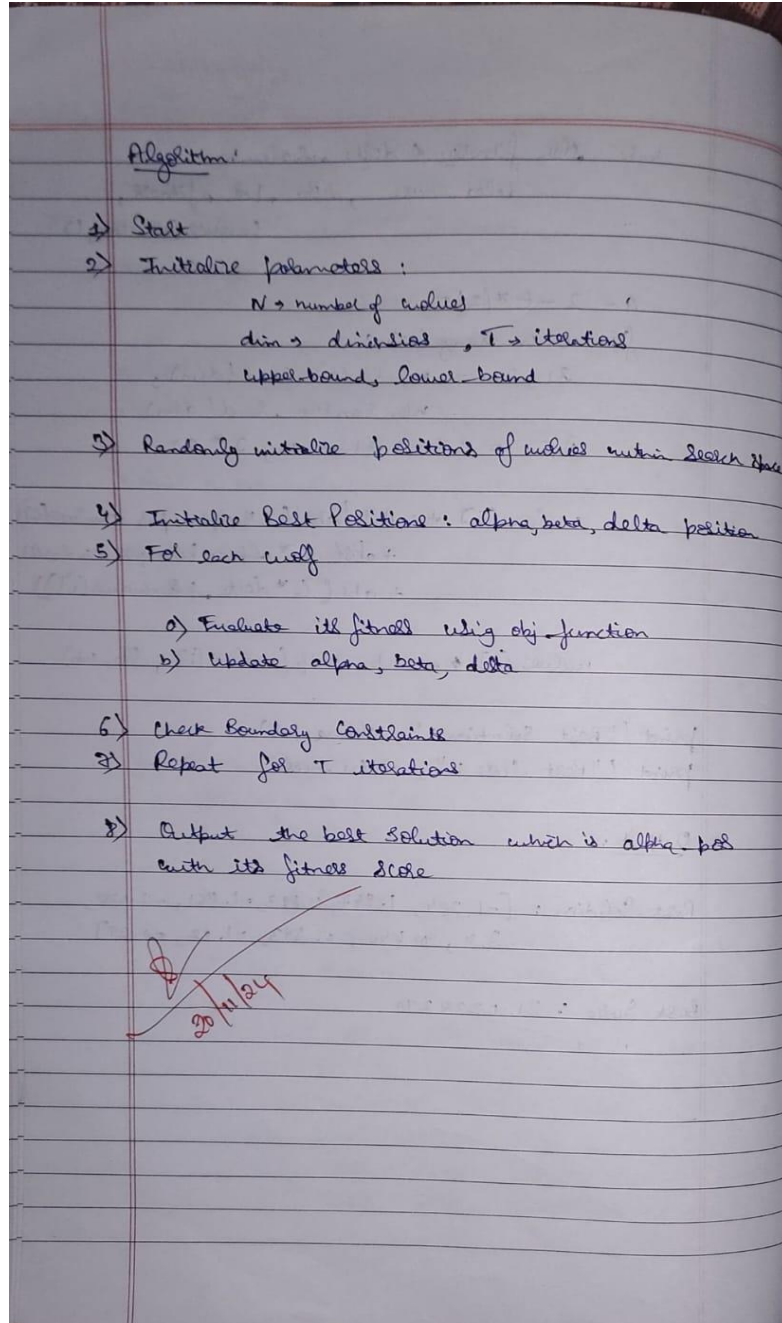 Algorithm:
1) Start
2) Initialize parameters :
N → number of wolves
dim → dimensions , T → iterations
upper-bound, lower-bound
3) Randomly initialize positions of wolves within search space
4) Initialize Best Positions : alpha, beta, delta position
5) For each wolf
a) Evaluate its fitness using obj-function
b) update alpha, beta, delta
6) Check Boundary Constraints
7) Repeat for T iterations
8) Output the best solution which is alpha-pos
with its fitness score
20/11/24